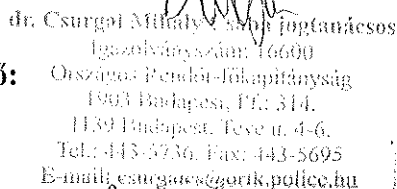 dr. Csurgai Mihály Csaba jogtanácsos
Igazolványszám: 16600
ő:
Országos Rendőr-főkapitányság
1903 Budapest, Pf.: 314.
1139 Budapest, Teve u. 4-6.
Tel.: 443-5736, Fax: 443-5695
E-mail: @orfk.police.hu